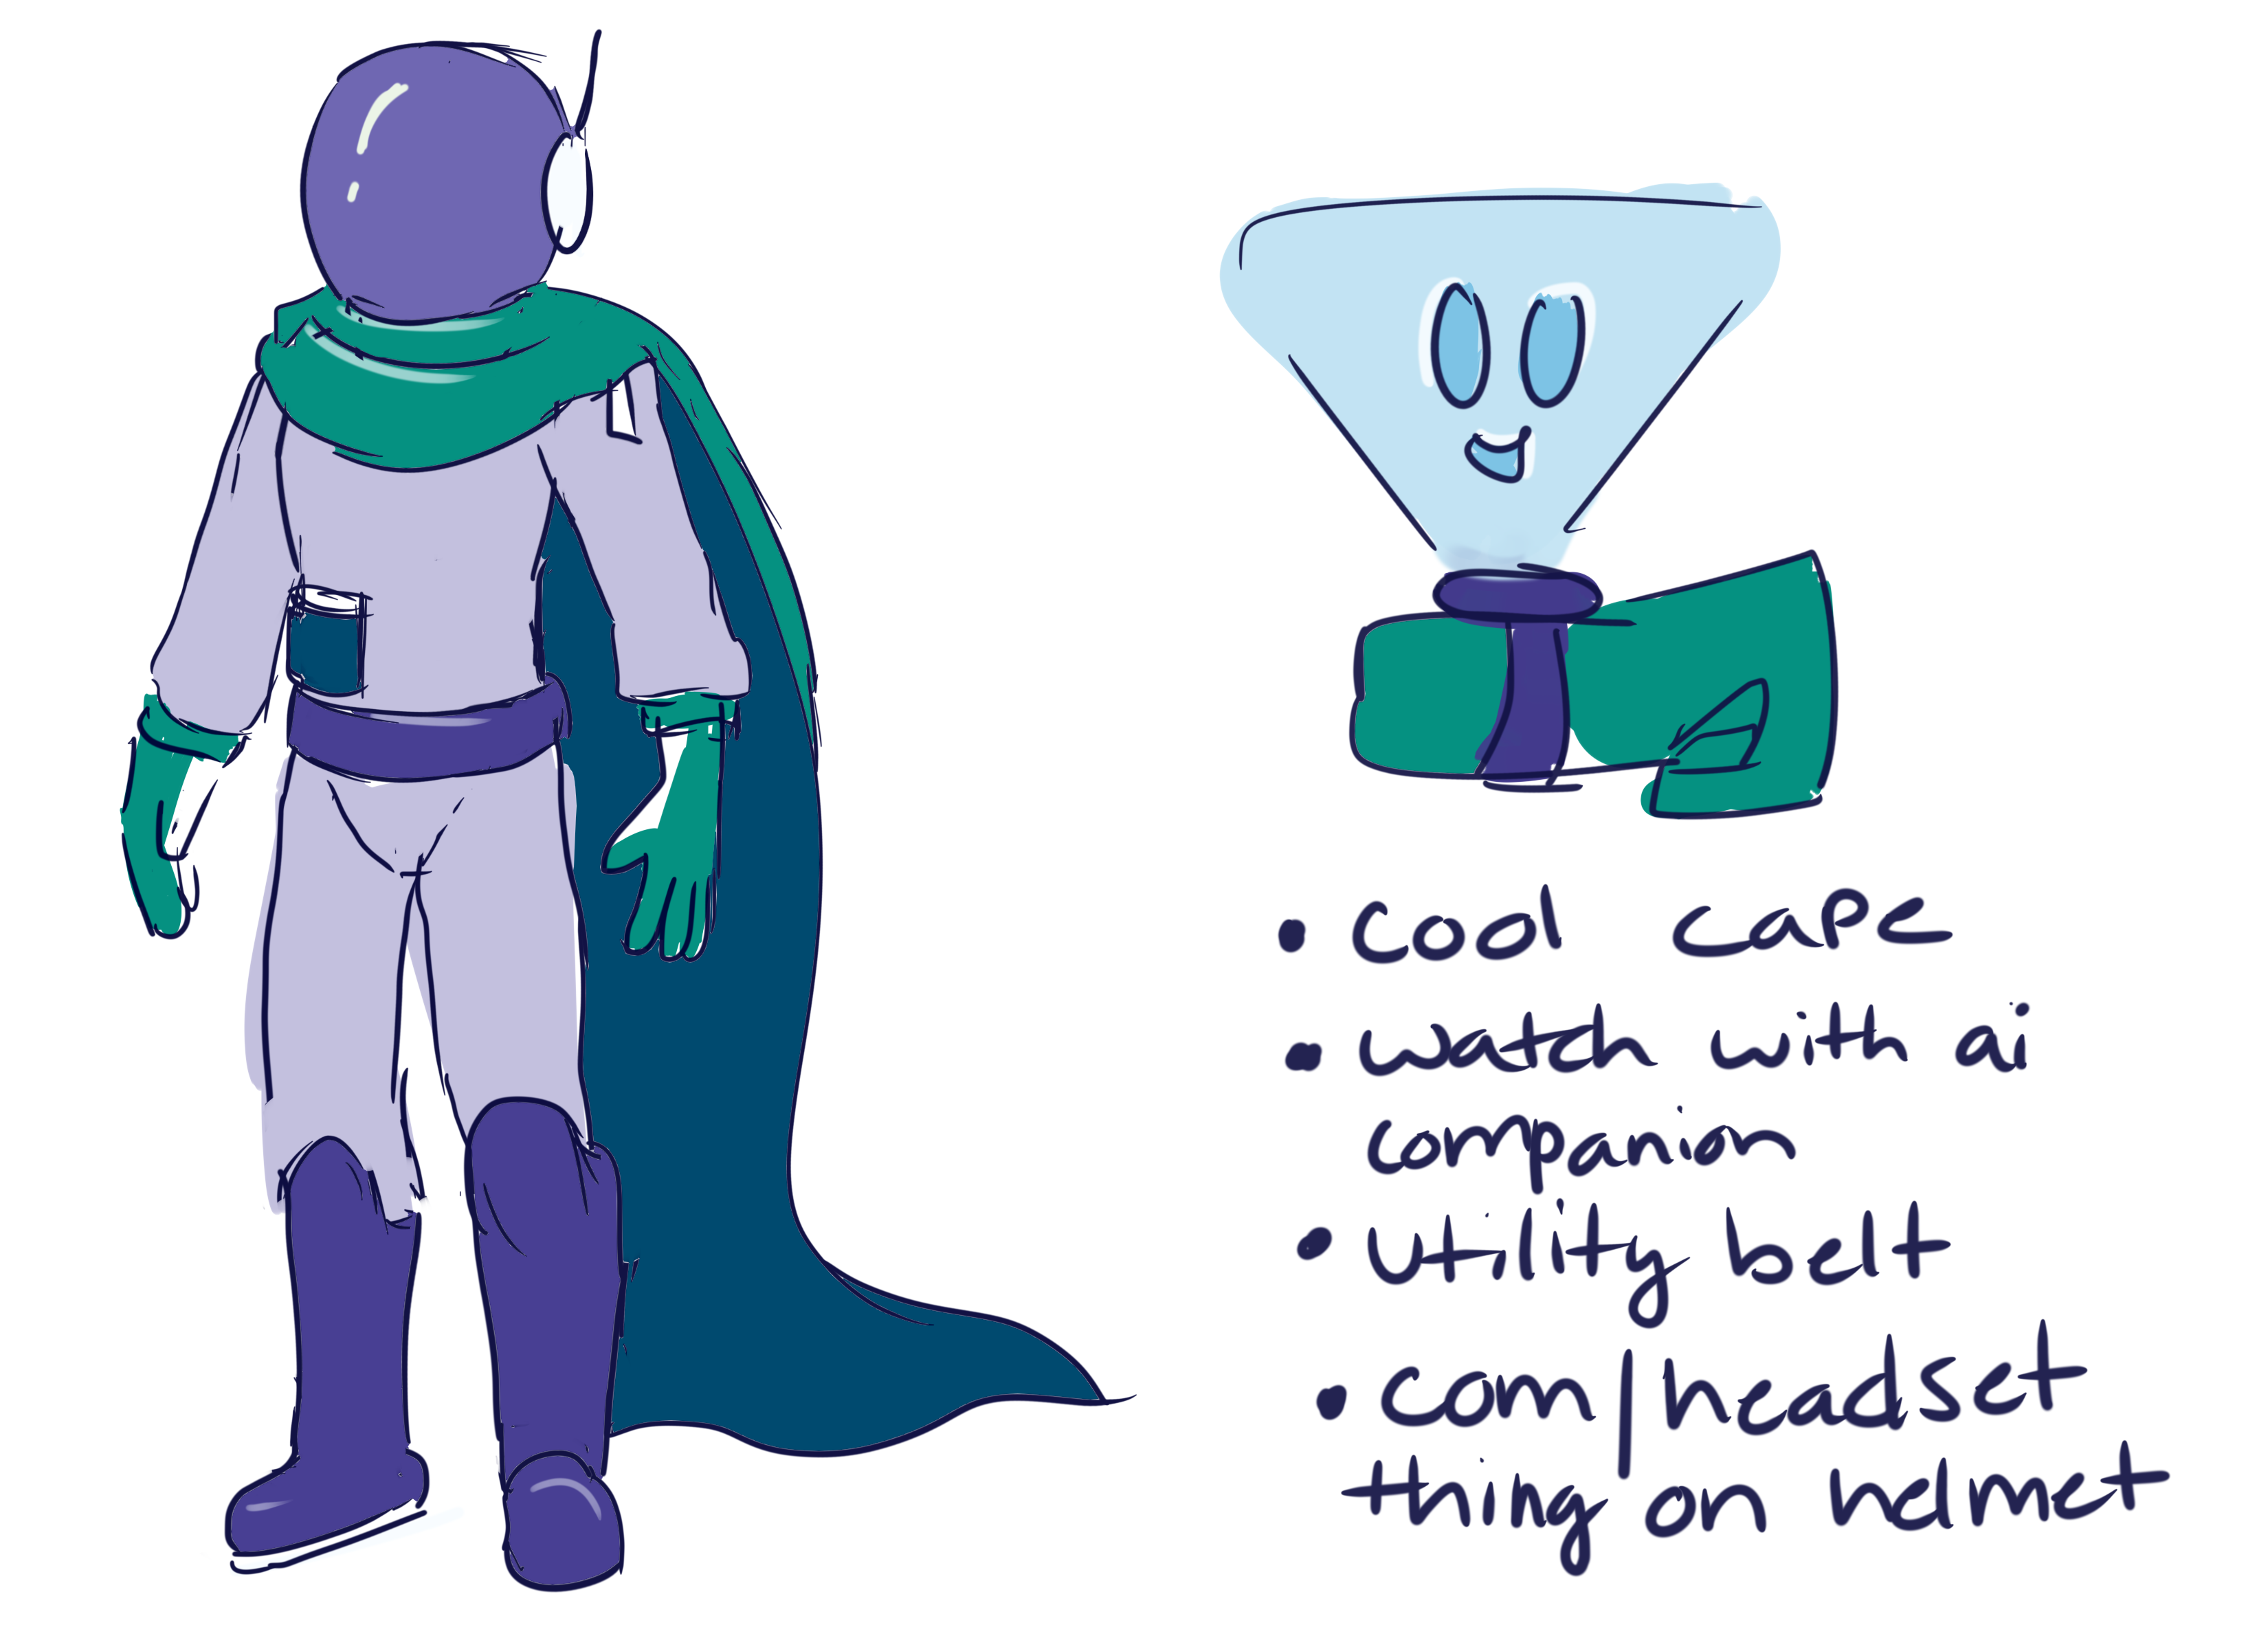 • cool cape
• watch with ai
companion
• utility belt
• com/headset
thing on helmet